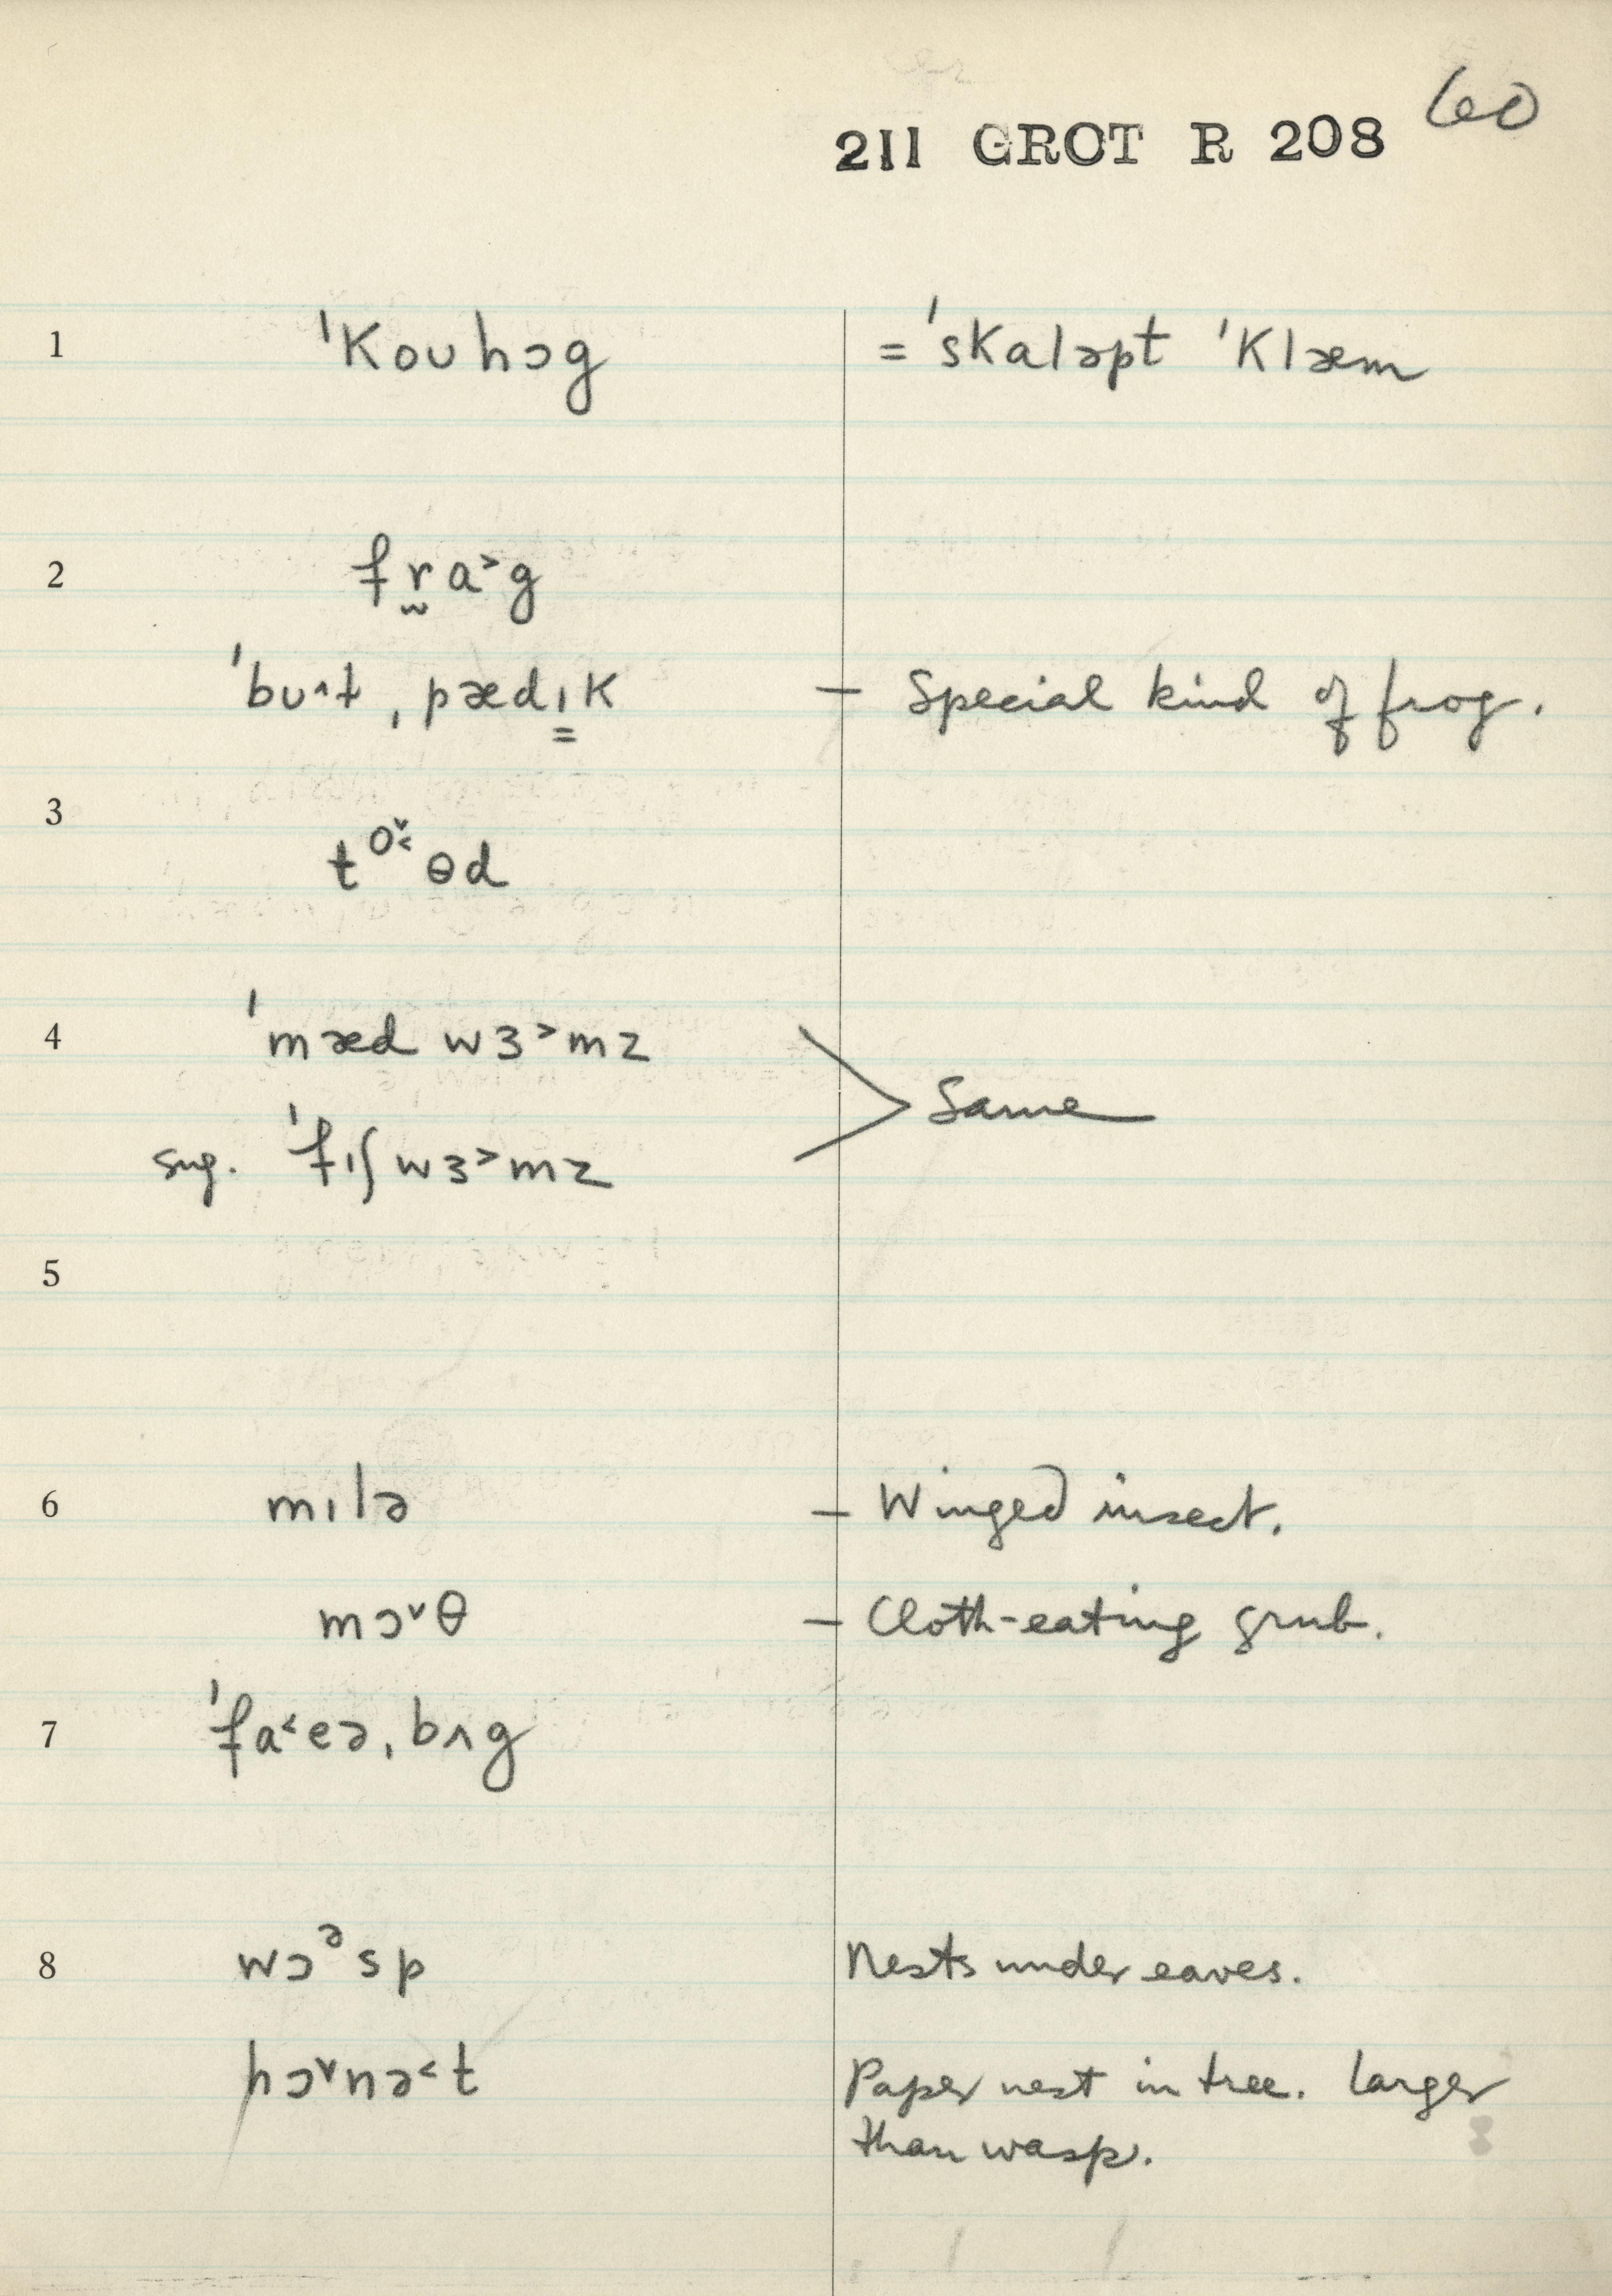 60
211 GROT R 208
1 ˈkoʊhɔg = ˈskaləpt ˈklæm
2 fr̫a˃g
ˈbʊ˄t ˌpædɪ̳k – Special kind of frog.
3 tᵒ˅˂ɵd
4 ˈmæd wɜ˃mz
Same
sug. ˈfɪʃwɜ˃mz
5
6 mɪlə – Winged insect.
mɔ˅θ – Cloth-eating grub.
7 ˈfa˂eəˌbʌg
8 wɔᵊsp Nests under eaves.
hɔ˅nə˂t Paper nest in tree. Larger
than wasp.